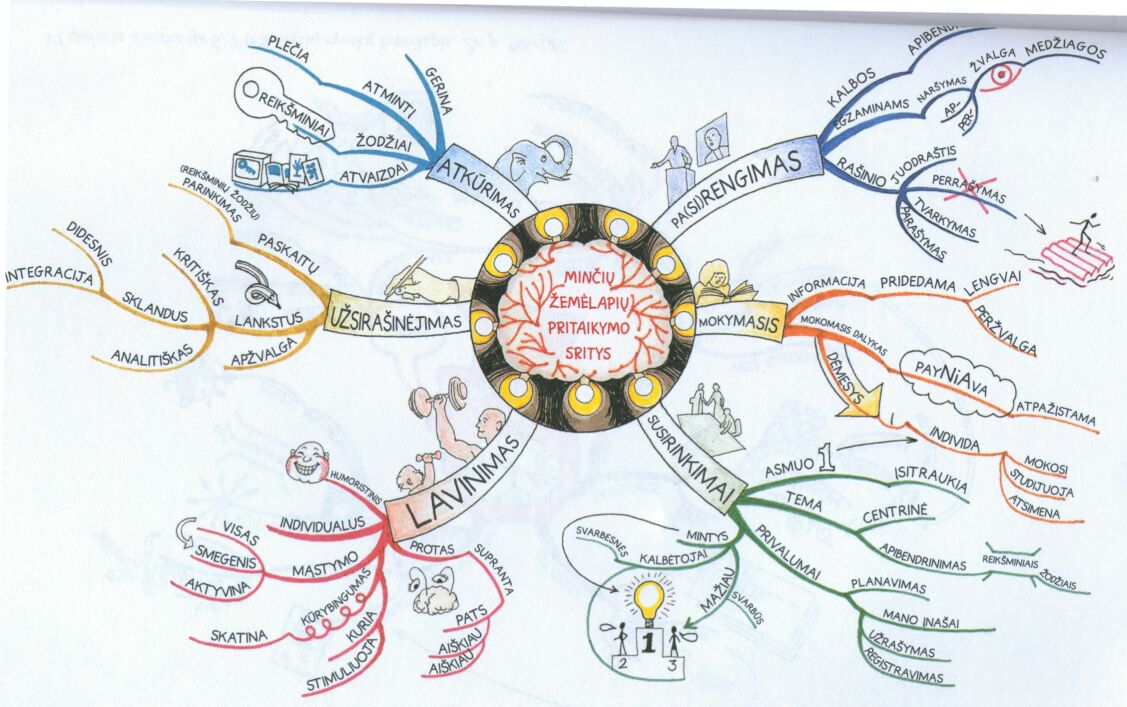 MINČIŲ
ŽEMĖLAPIŲ
PRITAIKYMO
SRITYS
PA(SI)RENGIMAS
KALBOS
EGZAMINAMS
NARŠYMAS
ŽVALGA
MEDŽIAGOS
AP-
PER-
RAŠINIO
JUODRAŠTIS
PERRAŠYMAS
TVARKYMAS
PARAŠYMAS
MOKYMASIS
INFORMACIJA
PRIDEDAMA
LENGVAI
PERŽVALGA
MOKOMASIS DALYKAS
PAYNiAVA
ATPAŽĮSTAMA
DĖMESYS
Į
INDIVIDĄ
MOKOSI
STUDIJUOJA
ATSIMENA
SUSIRINKIMAI
ASMUO 1
ĮSITRAUKIA
TEMA
CENTRINĖ
APIBENDRINIMAS
REIKŠMINIAIS
ŽODŽIAIS
PRIVALUMAI
PLANAVIMAS
MANO INAŠAI
UŽRAŠYMAS
REGISTRAVIMAS
MAŽIAU
SVARBŪS
MINTYS
KALBĖTOJAI
SVARBESNĖS
2
1
3
LAVINIMAS
PROTAS
SUPRANTA
PATS
AIŠKIAU
AIŠKIAU
HUMORISTINIS
INDIVIDUALUS
MĄSTYMO
VISAS
SMEGENIS
AKTYVINA
KŪRYBINGUMĄ
SKATINA
KURIA
STIMULIUOJA
UŽSIRAŠINĖJIMAS
PASKAITŲ
(REIKŠMINIŲ ŽODŽIŲ)
PARINKIMAS
LANKSTUS
KRITIŠKAS
SKLANDUS
DIDESNIS
INTEGRACIJA
ANALITIŠKAS
APŽVALGA
ATKŪRIMAS
GERINA
ATMINTĮ
PLEČIA
ŽODŽIAI
REIKŠMINIAI
ATVAIZDAI